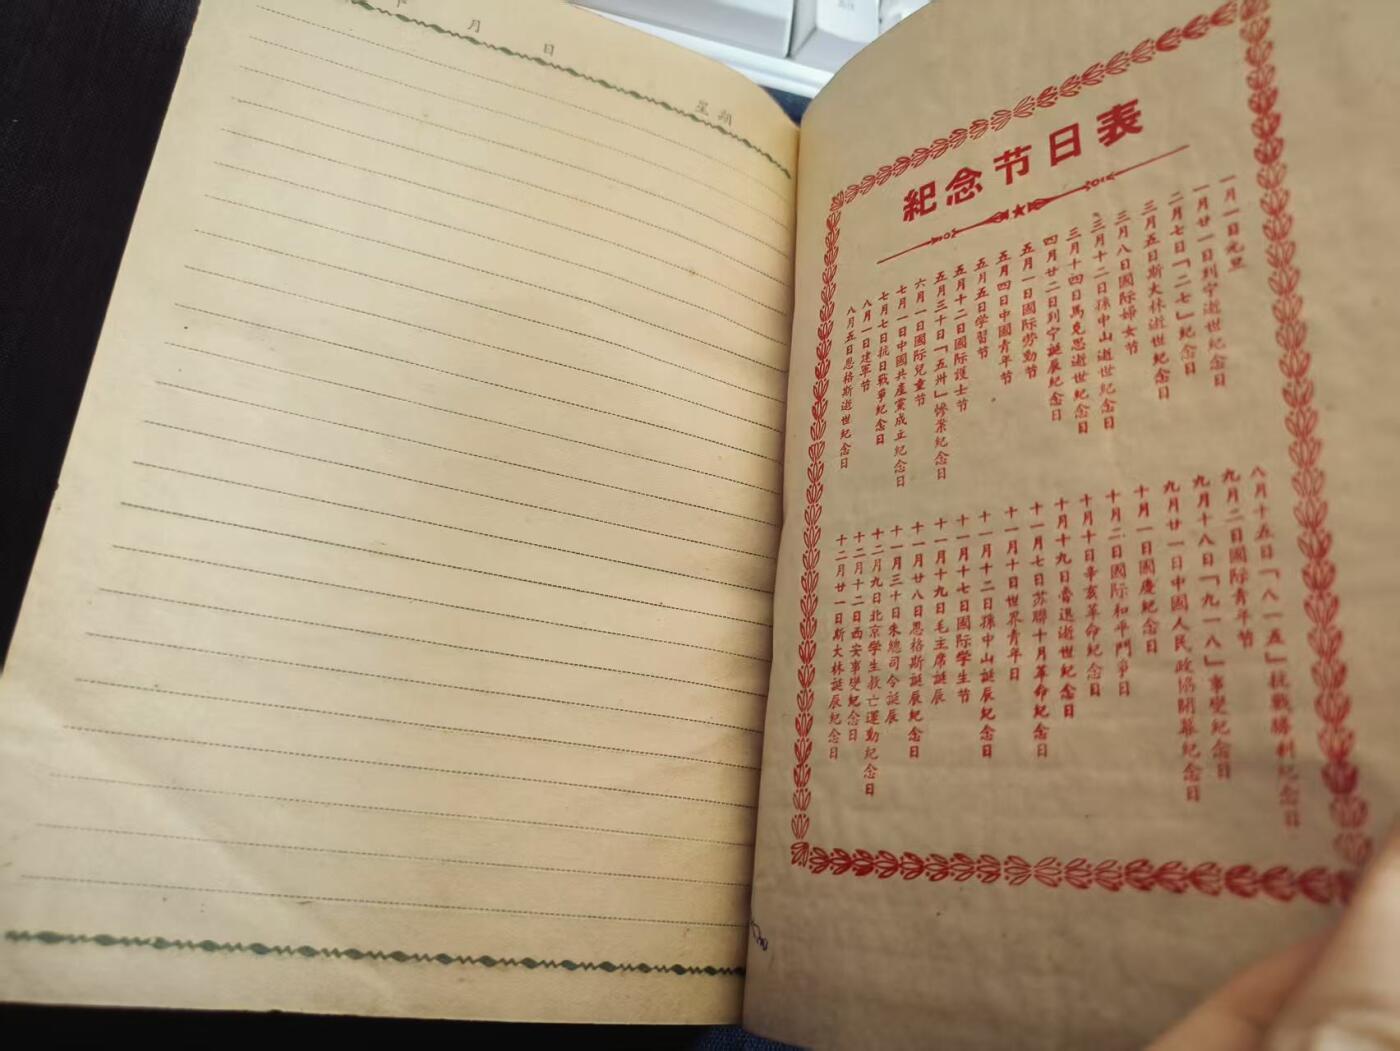 月 日
星期
紀念节日表
一月一日元旦
一月廿一日列宁逝世纪念日
二月七日「二七」紀念日
三月五日斯大林逝世紀念日
三月八日國际婦女节
三月十二日孫中山逝世紀念日
三月十四日馬克思逝世紀念日
四月廿二日列宁誕辰紀念日
五月一日國际勞動节
五月四日中國青年节
五月五日学習节
五月十二日國际護士节
五月三十日「五卅」慘案紀念日
六月一日國际兒童节
七月一日中國共產黨成立紀念日
七月七日抗日戰爭紀念日
八月一日建軍节
八月五日恩格斯逝世紀念日
八月十五日「八一五」抗戰勝利紀念日
九月二日國际青年节
九月十八日「九一八」事變紀念日
九月廿一日中國人民政協開幕紀念日
十月一日國慶紀念日
十月二日國际和平鬥爭日
十月十日辛亥革命紀念日
十月十九日魯迅逝世紀念日
十一月七日苏聯十月革命紀念日
十一月十日世界青年日
十一月十二日孫中山誕辰紀念日
十一月十七日國际学生节
十一月十九日毛主席誕辰
十一月廿八日恩格斯誕辰紀念日
十一月三十日朱總司令誕辰
十二月九日北京学生救亡運動紀念日
十二月十二日西安事變紀念日
十二月廿一日斯大林誕辰紀念日